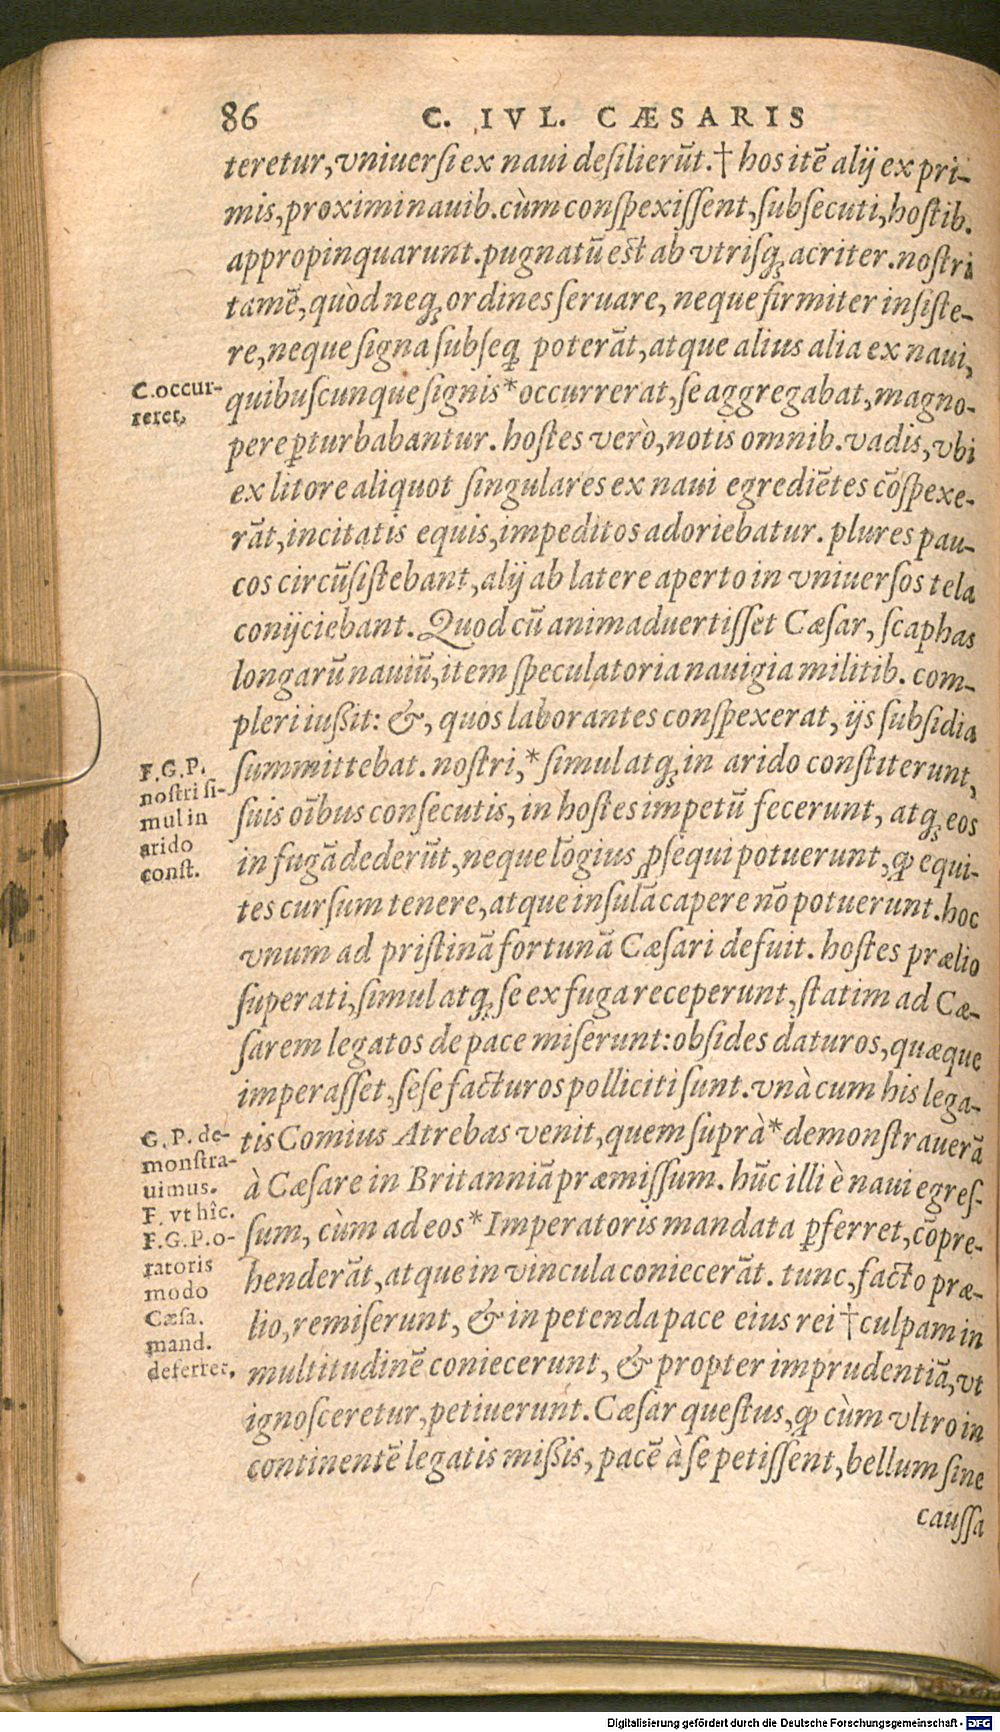 86 C. IVL. CÆSARIS
teretur, vniuersi ex naui desilierūt. † hos itē alij ex pri-
mis, proximi nauib. cùm conspexissent, subsecuti, hostib.
appropinquarunt. pugnatū est ab vtrisq; acriter. nostri
tamē, quòd neq; ordines seruare, neque firmiter insiste-
re, neque signa subseq̨ poterāt, atque alius alia ex naui,
C. occur-
reret,
quibuscunque signis * occurrerat, se aggregabat, magno-
pere ꝑturbabantur. hostes verò, notis omnib. vadis, vbi
ex litore aliquot singulares ex naui egrediētes cōspexe-
rāt, incitatis equis, impeditos adoriebatur. plures pau-
cos circūsistebant, alij ab latere aperto in vniuersos tela
conijciebant. Quod cū animaduertisset Cæsar, scaphas
longarū nauiū, item speculatoria nauigia militib. com-
pleri iußit: &, quos laborantes conspexerat, ijs subsidia
F. G. P.
nostri si-
mul in
arido
const.
summittebat. nostri, * simul atq; in arido constiterunt,
suis oībus consecutis, in hostes impetū fecerunt, atq; eos
in fugā dederūt, neque lōgius ꝓsequi potuerunt, ꝙ equi-
tes cursum tenere, atque insulā capere nō potuerunt. hoc
vnum ad pristinā fortunā Cæsari defuit. hostes prælio
superati, simul atq; se ex fuga receperunt, statim ad Cæ-
sarem legatos de pace miserunt: obsides daturos, quæque
imperasset, sese facturos polliciti sunt. vnà cum his lega-
G. P. de-
monstra-
uimus.
F. vt hîc.
F. G. P. o-
ratoris
modo
Cæsa.
mand.
deferret.
tis Comius Atrebas venit, quem suprà * demonstrauerā
à Cæsare in Britanniā præmissum. hūc illi è naui egres-
sum, cùm ad eos * Imperatoris mandata ꝑferret, cōpre-
henderāt, atque in vincula coniecerāt. tunc, facto præ-
lio, remiserunt, & in petenda pace eius rei † culpam in
multitudinē coniecerunt, & propter imprudentiā, vt
ignosceretur, petiuerunt. Cæsar questus, ꝙ cùm vltro in
continentē legatis mißis, pacē à se petissent, bellum sine
caussa
Digitalisierung gefördert durch die Deutsche Forschungsgemeinschaft - DFG